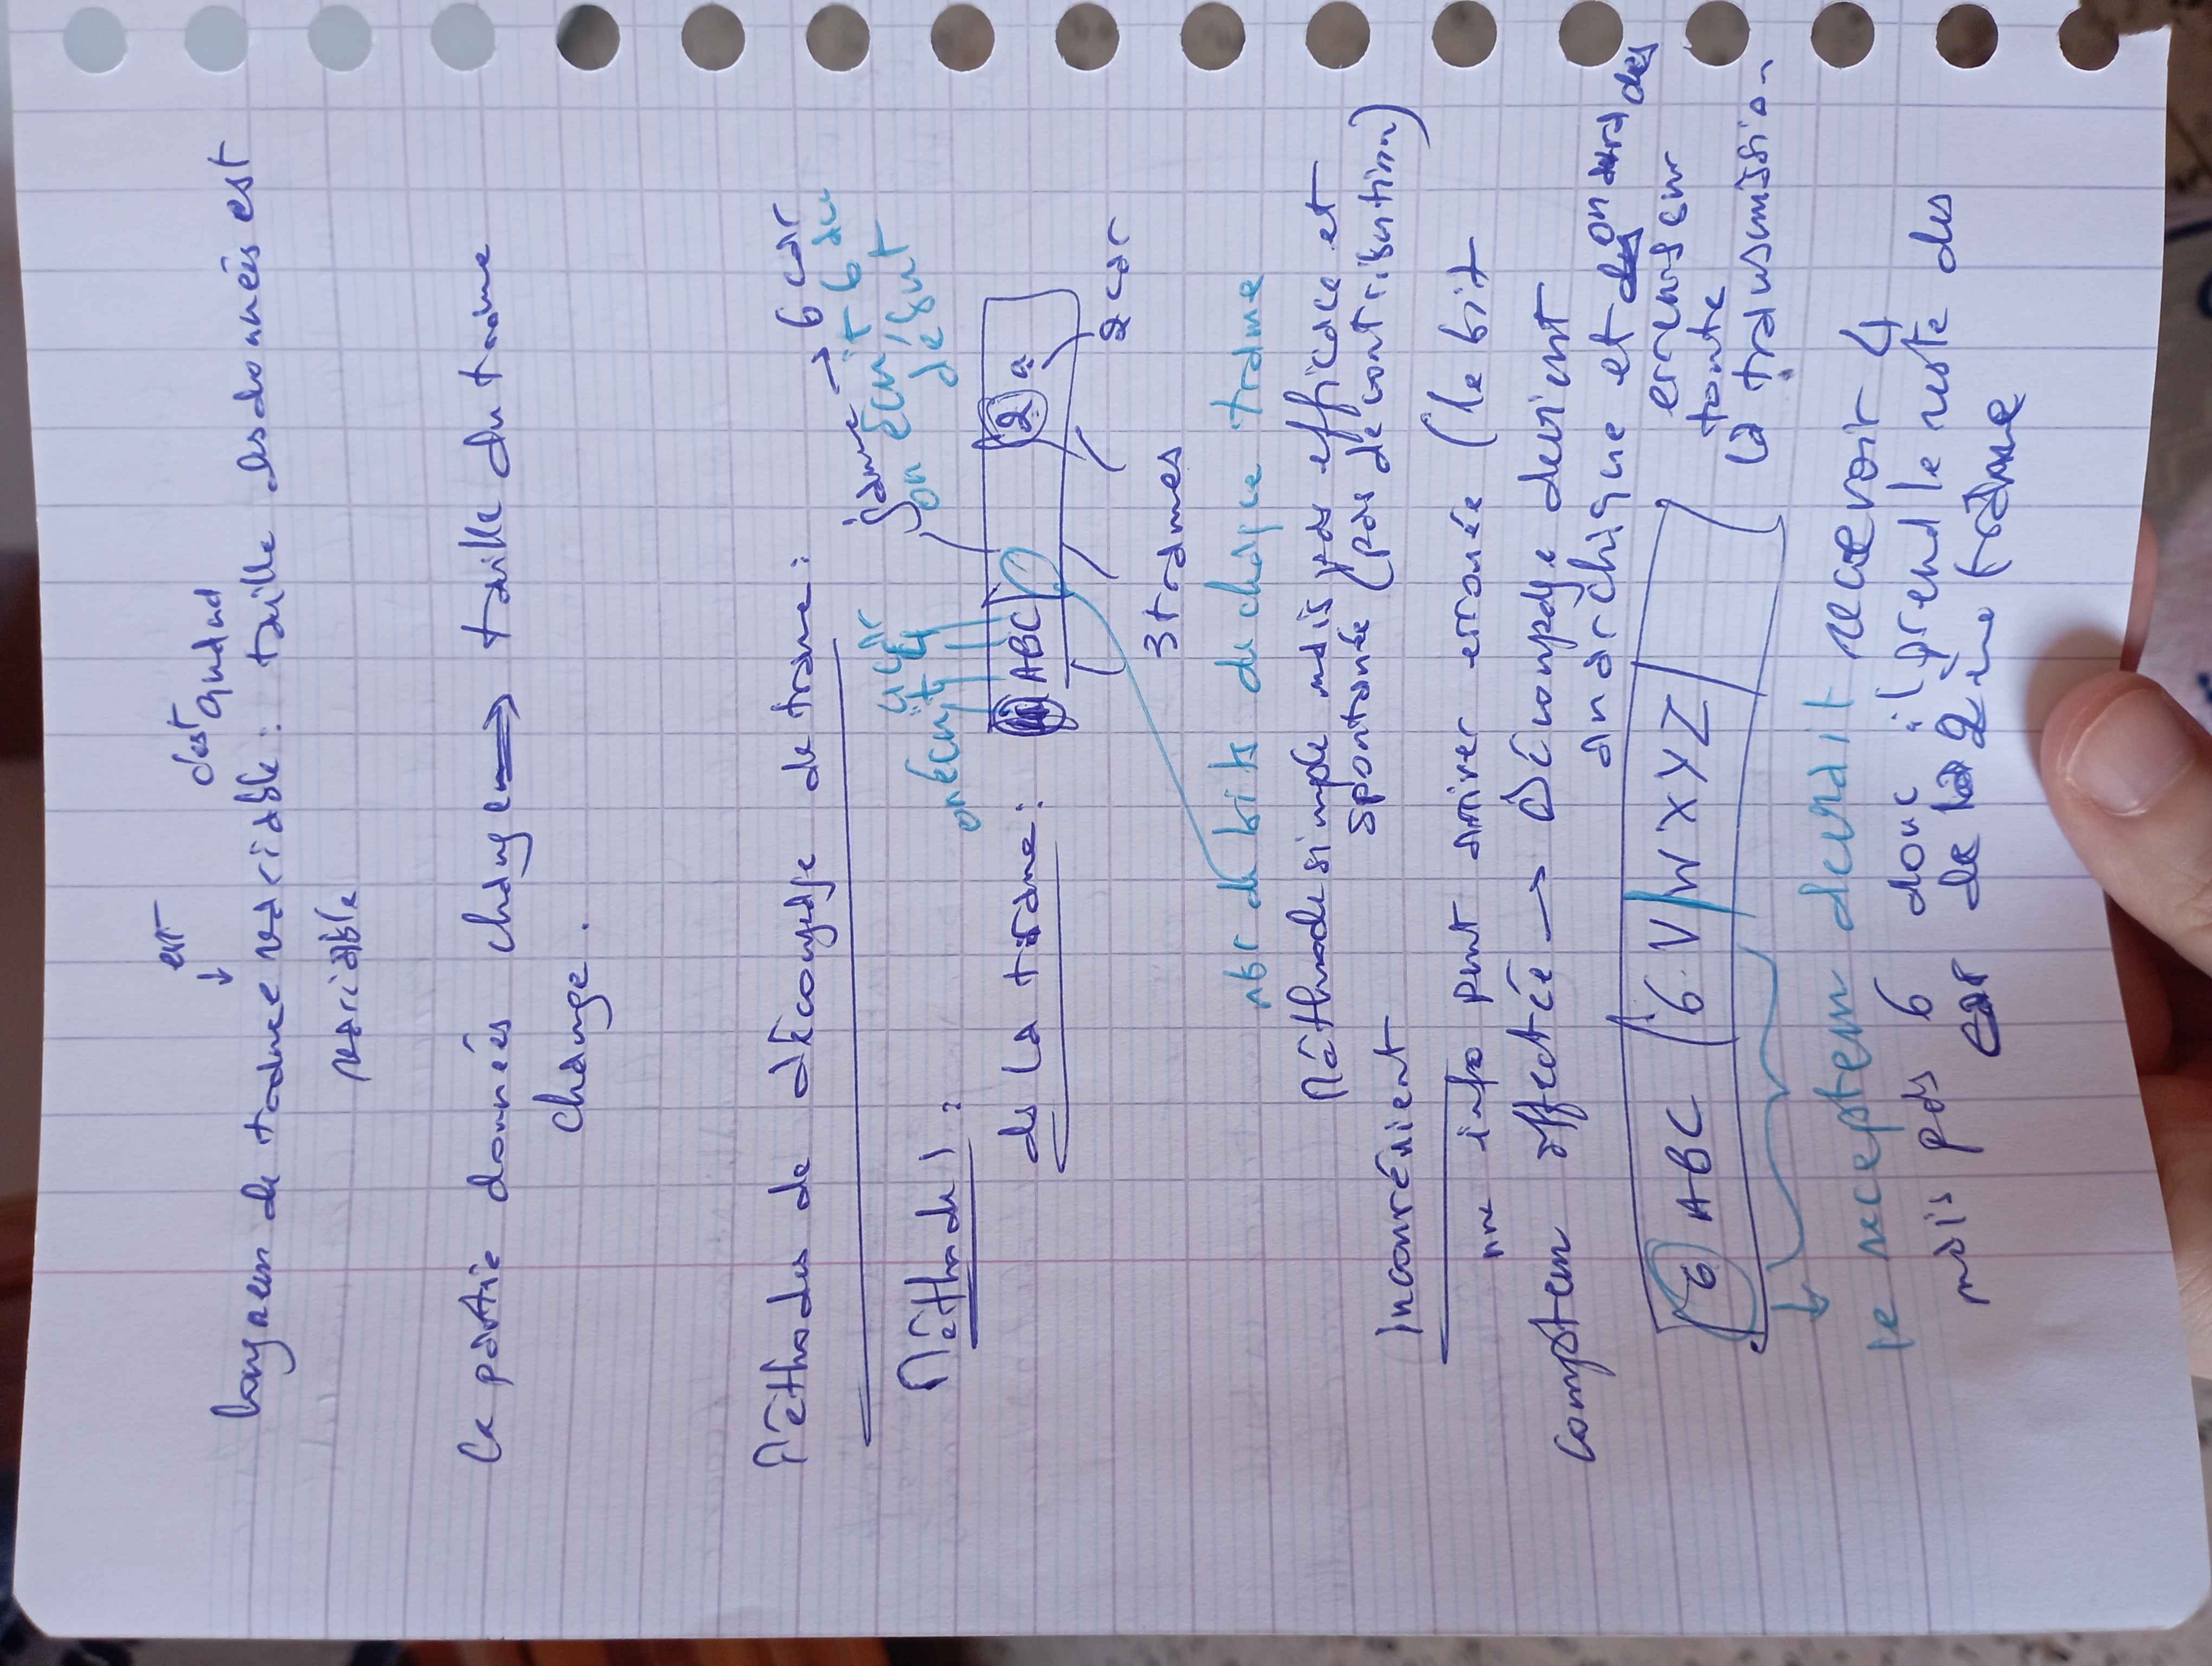 est
c'est quand
longueur de trame variable : taille des données est
variable
la partie données change ⟹ taille du trame
change.
Méthodes de découpage de trame :
Méthode 1 :
4 car
on écrit 4
2ème → 6 car
on écrit 6 au
début
de la trame :
4 ABC
2 a
2 car
3 trames
nbr de bits de chaque trame
Méthode simple mais pas efficace et
spontanée (pas de contribution)
Inconvénient
une info peut arriver erronée (le bit
compteur affectée → Découpage devient
anarchique et on aura des
erreurs sur
toute
la transmission
6 ABC 6 V W X Y Z
le recepteur devrait recevoir 4
mais pas 6 donc il prend le reste des
car de la 2ème trame